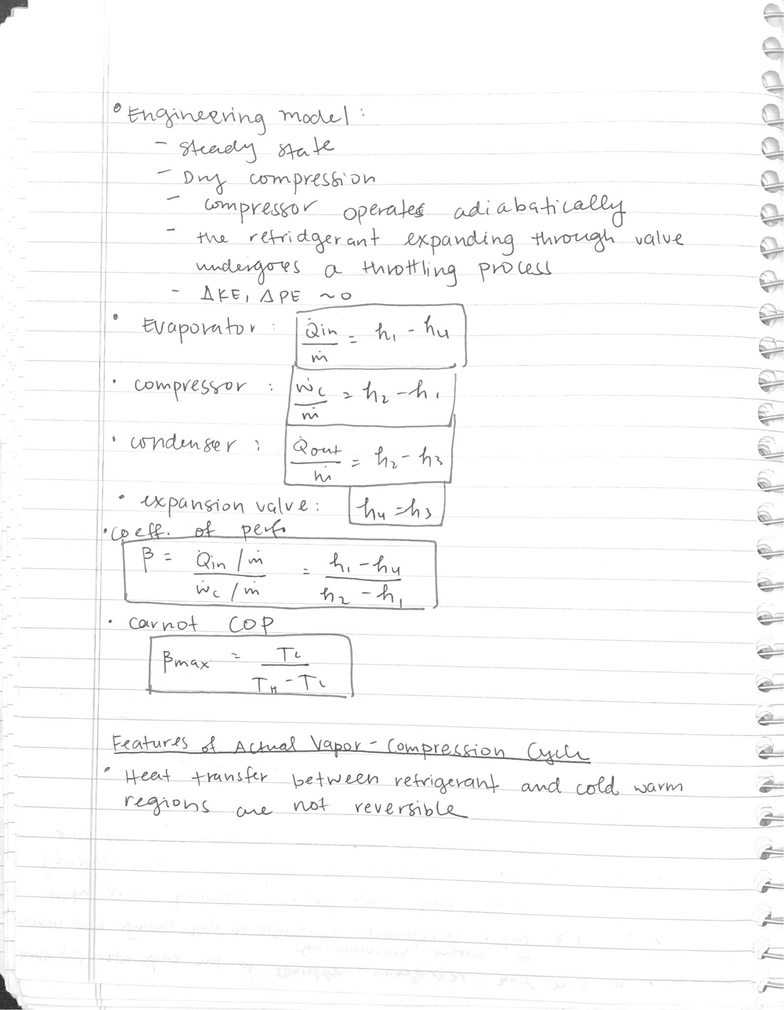 • Engineering model:
- steady state
- Dry compression
- compressor operates adiabatically
- the refridgerant expanding through valve
undergoes a throttling process
- ΔKE, ΔPE ~0
• Evaporator: Q̇in/ṁ = h₁ - h₄
• compressor: Ẇc/ṁ = h₂ - h₁
• condenser: Q̇out/ṁ = h₂ - h₃
• expansion valve: h₄ = h₃
• coeff. of perf.
β = (Q̇in/ṁ)/(Ẇc/ṁ) = (h₁ - h₄)/(h₂ - h₁)
• carnot COP
βmax = TL/(TH - TL)
Features of Actual Vapor-Compression Cycle
• Heat transfer between refrigerant and cold warm
regions are not reversible